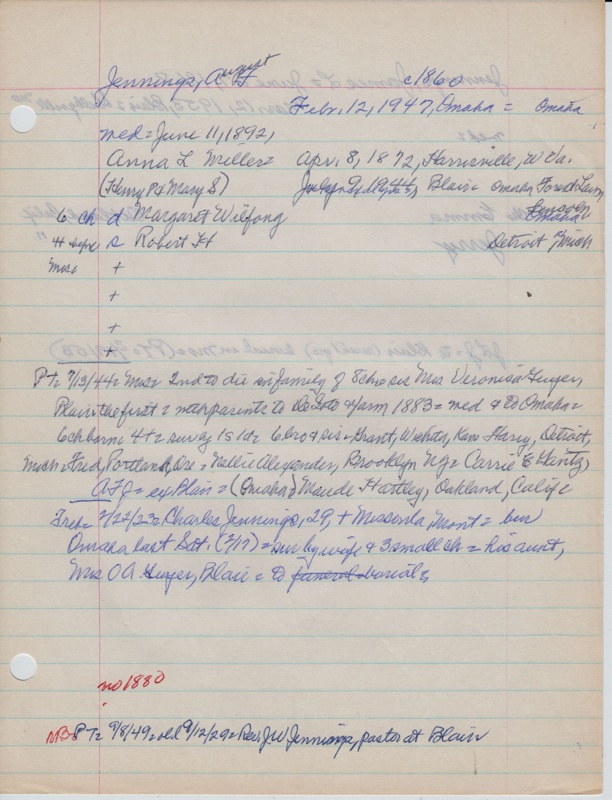 Jennings, August F c1860
Febr, 12, 1947, Omaha = Omaha
med = June 11, 1892,
Anna L Miller = Apr. 8, 1872, Harrisville, W Va.
(Henry P & Mary S) Blair = Omaha, Forest Lawn,
Lincoln
6 ch d Margaret Wilfong Omaha
4 + before s Robert H Detroit Mich
Mose +
+
+
+
PT = 7/13/44 = Mose = 2nd to die in family of 5 chr = sis Mrs Veronica Guyer,
Blair the first = with parents to farm 1883 = med & to Omaha =
6 ch born 4 + = surv 1 s 1 d = 6 bro & sis = Grant, Wichita, Kan = Harry, Detroit,
Mich = Fred, Portland, Ore = Nellie Alexander, Brooklyn NY = Carrie E Hentz,
AFJ = ex Blair = (Omaha) Maude Hartley, Oakland, Calif =
Fred = 2/22/23 = Charles Jennings, 29, + Missoula, Mont = bur
Omaha last Sat. (2/17) = sur by wife & 3 small ch = his aunt,
Mrs O A Guyer, Blair = to funeral burial =
no 1880
NB PT = 9/8/49 = old 9/12/29 = Rev. J W Jennings, pastor at Blair